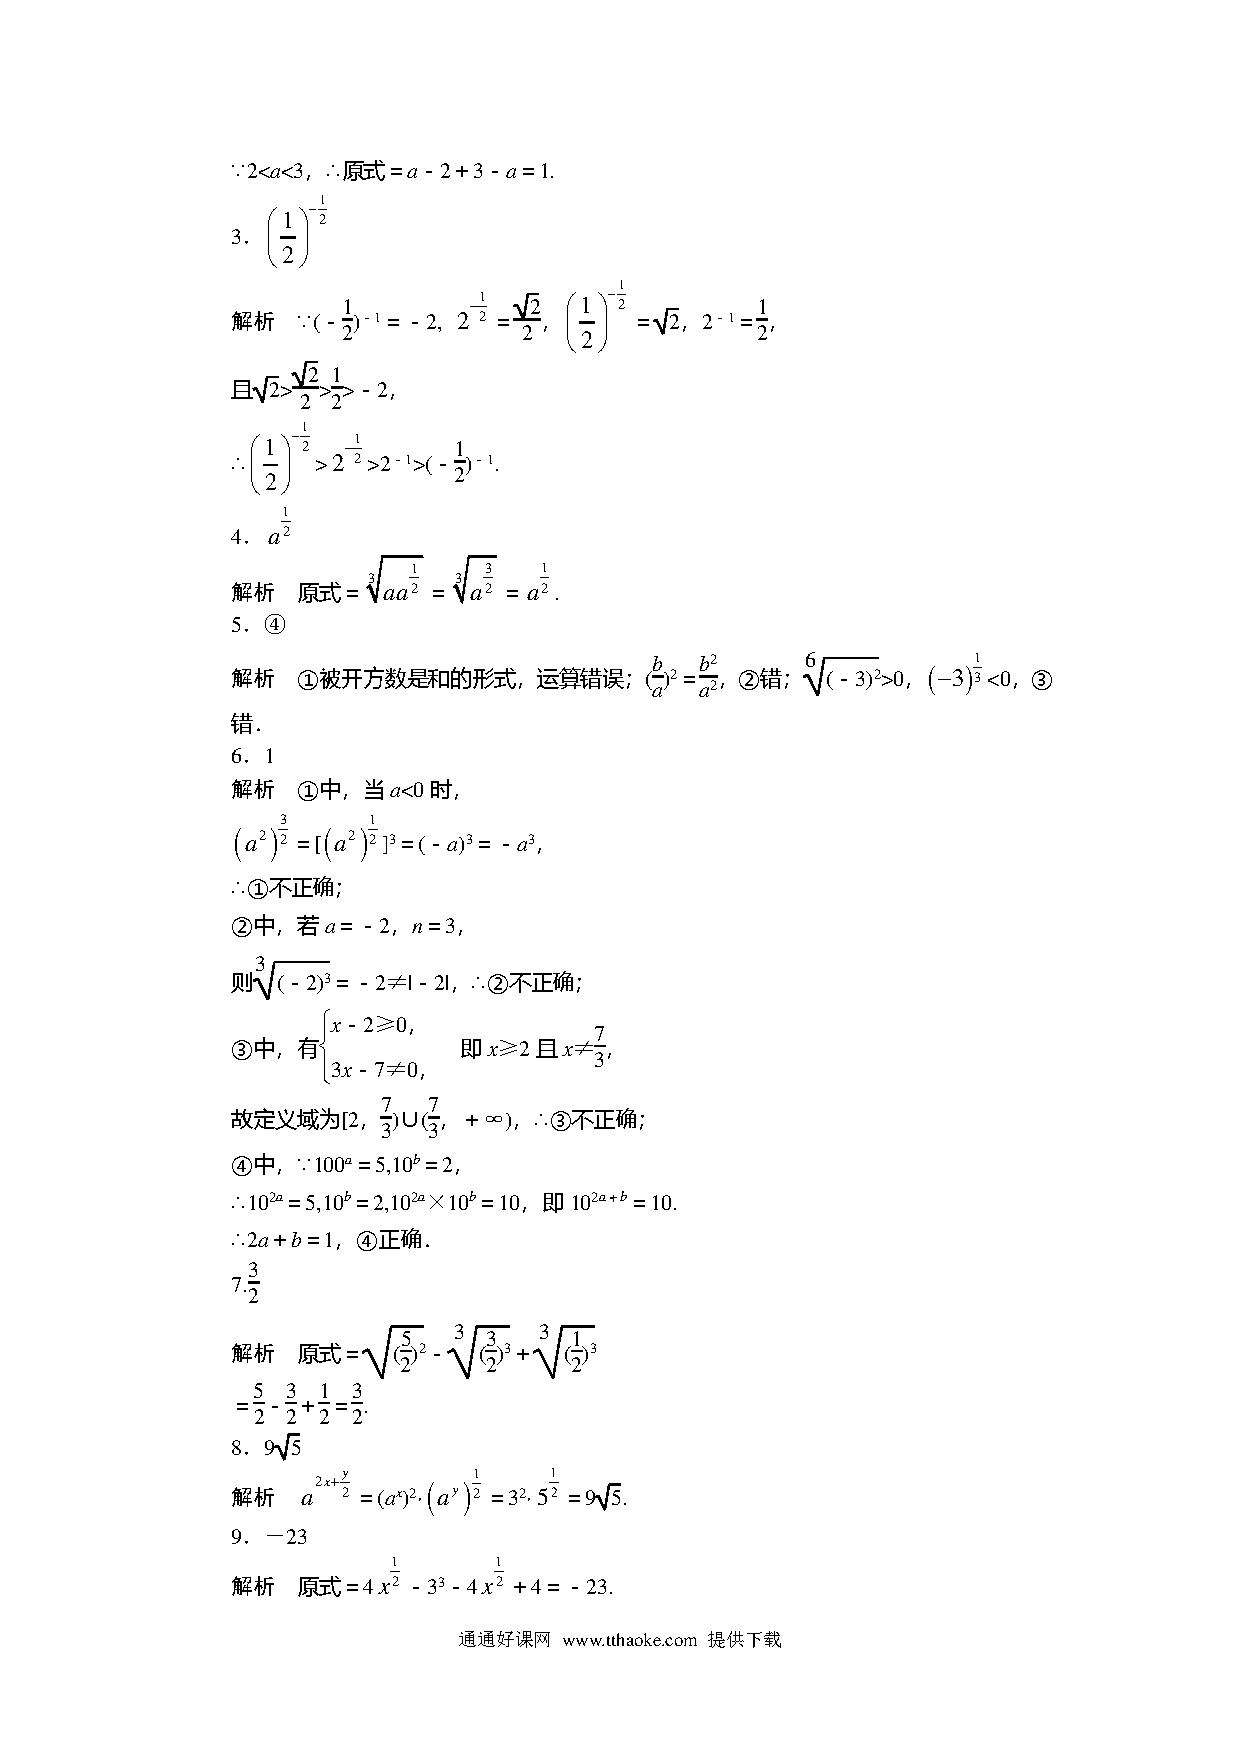 ∵2<a<3，∴原式＝a－2＋3－a＝1.
3．(1/2)^(−1/2)
解析　∵(－1/2)^(－1)＝－2, 2^(−1/2)＝√2/2，(1/2)^(−1/2)＝√2，2^(－1)＝1/2，
且√2>√2/2>1/2>－2，
∴(1/2)^(−1/2)>2^(−1/2)>2^(－1)>(－1/2)^(－1).
4．a^(1/2)
解析　原式＝∛(aa^(1/2))＝∛(a^(3/2))＝a^(1/2).
5．④
解析　①被开方数是和的形式，运算错误；(b/a)²＝b²/a²，②错；⁶√((－3)²)>0，(−3)^(1/3)<0，③
错．
6．1
解析　①中，当a<0时，
(a²)^(3/2)＝[(a²)^(1/2)]³＝(－a)³＝－a³，
∴①不正确；
②中，若a＝－2，n＝3，
则∛((－2)³)＝－2≠|－2|，∴②不正确；
③中，有{x－2≥0，3x－7≠0，　即x≥2且x≠7/3，
故定义域为[2，7/3)∪(7/3，＋∞)，∴③不正确；
④中，∵100^a＝5,10^b＝2，
∴10^(2a)＝5,10^b＝2,10^(2a)×10^b＝10，即10^(2a＋b)＝10.
∴2a＋b＝1，④正确．
7.3/2
解析　原式＝√((5/2)²)－∛((3/2)³)＋∛((1/2)³)
＝5/2－3/2＋1/2＝3/2.
8．9√5
解析　a^(2x+y/2)＝(a^x)²·(a^y)^(1/2)＝3²·5^(1/2)＝9√5.
9．－23
解析　原式＝4x^(1/2)－3³－4x^(1/2)＋4＝－23.
通通好课网 www.tthaoke.com 提供下载